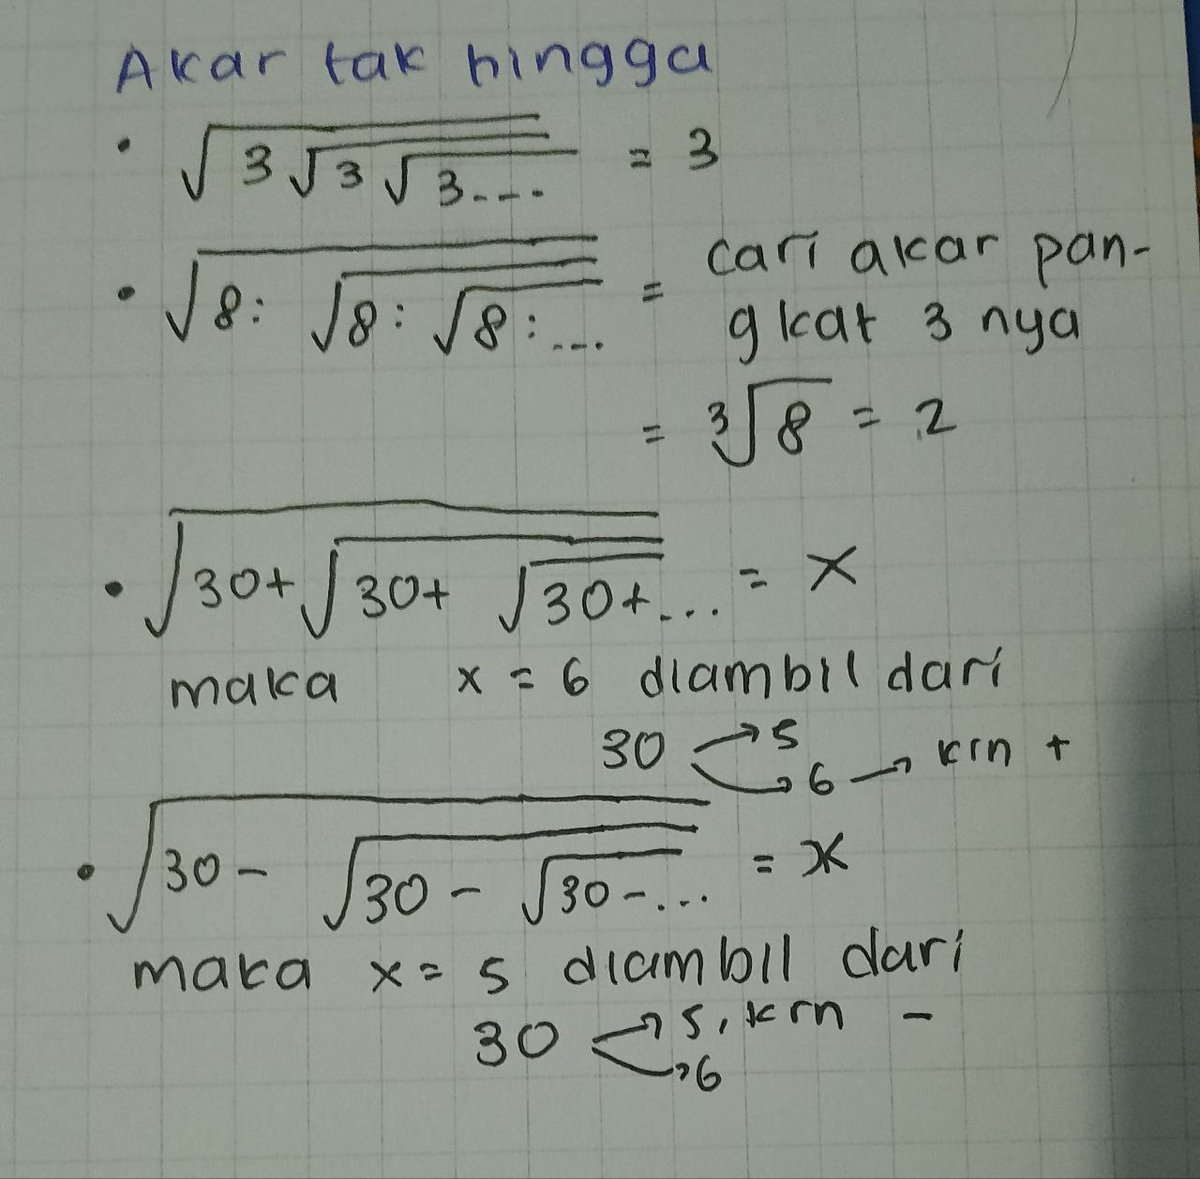 Akar tak hingga
• √(3√(3√(3....))) = 3
• √(8: √(8: √(8:...))) = cari akar pan-
gkat 3 nya
= ³√8 = 2
• √(30+√(30+ √(30+...))) = x
maka x = 6 diambil dari
30 → 5
→ 6 → krn +
• √(30- √(30- √(30-...))) = x
maka x = 5 diambil dari
30 → 5, krn -
→ 6